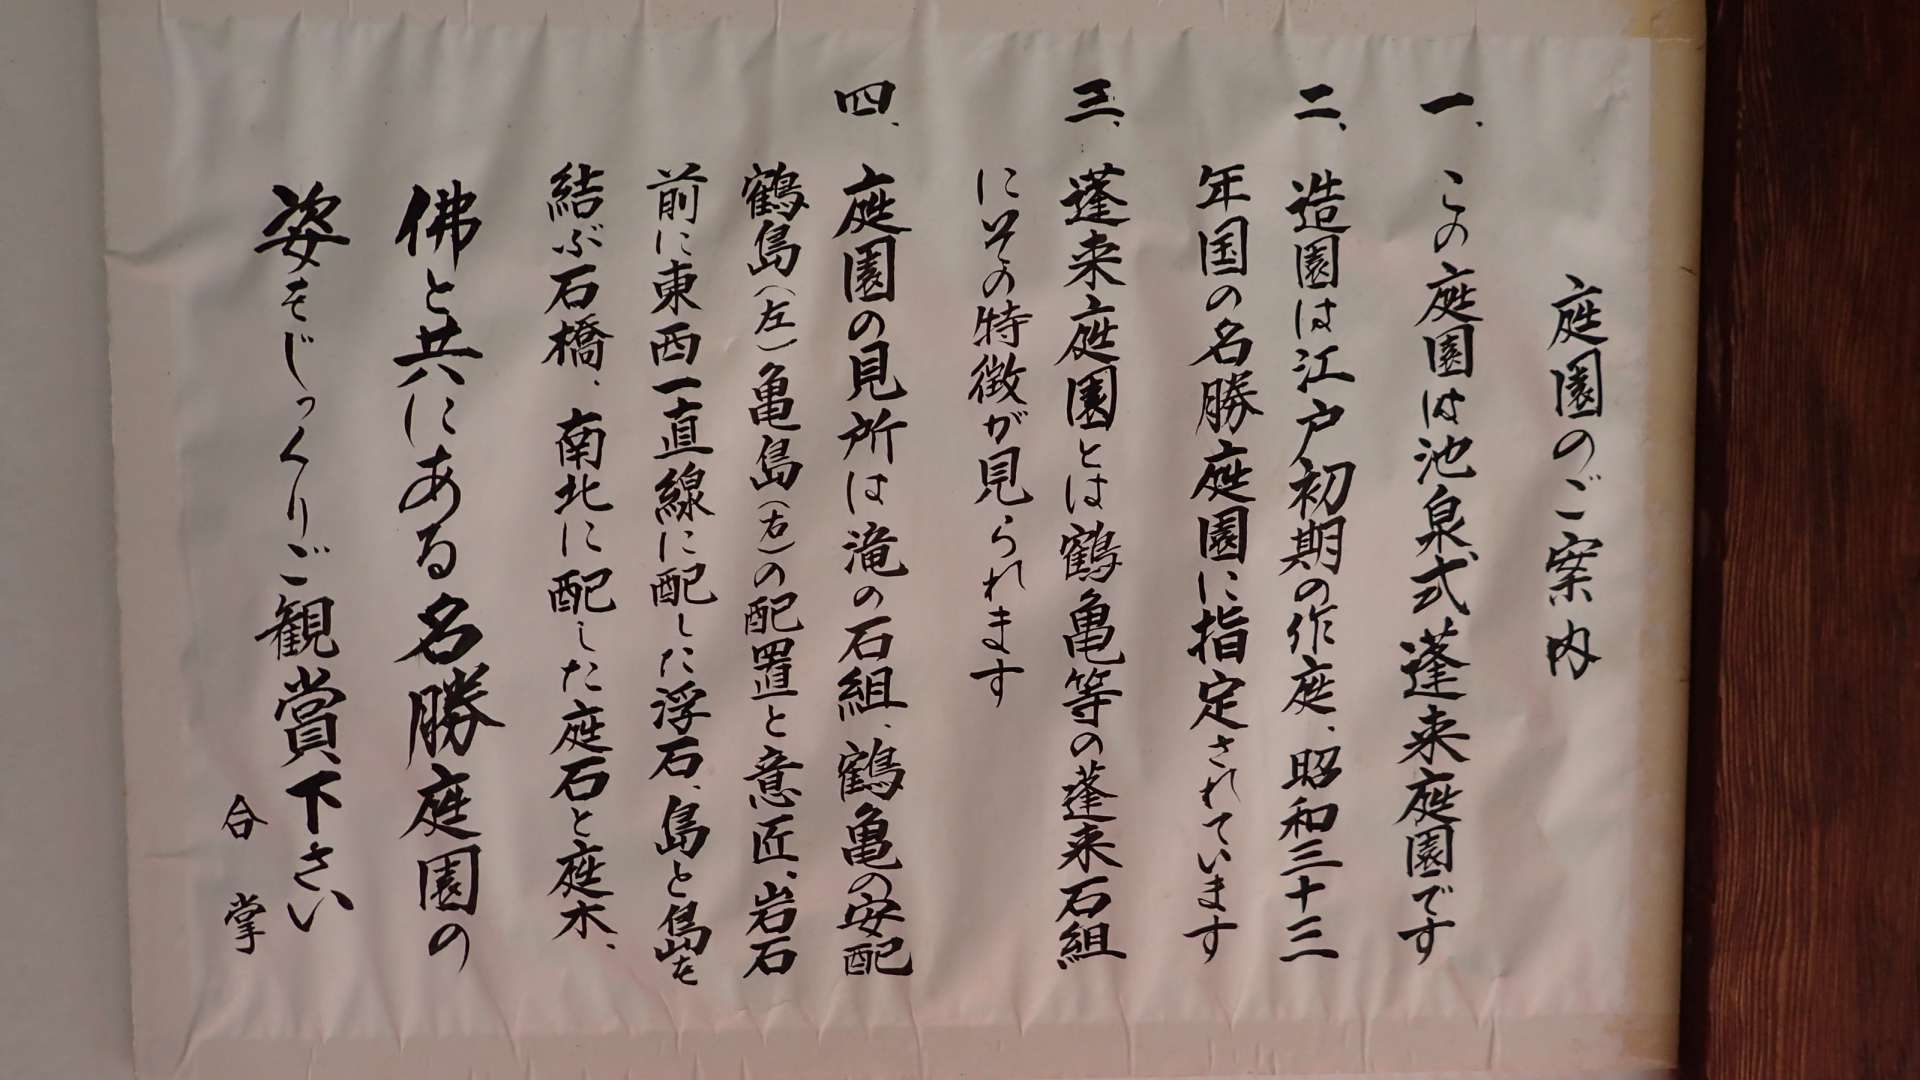 庭園のご案内
一、この庭園は池泉式蓬来庭園です
二、造園は江戸初期の作庭、昭和三十三
年国の名勝庭園に指定されています
三、蓬来庭園とは鶴亀等の蓬来石組
にその特徴が見られます
四、庭園の見所は滝の石組、鶴亀の安配
鶴島(左)亀島(右)の配置と意匠、岩石
前に東西一直線に配した浮石、島と島を
結ぶ石橋、南北に配した庭石と庭木、
佛と共にある名勝庭園の
姿をじっくりご観賞下さい
合掌